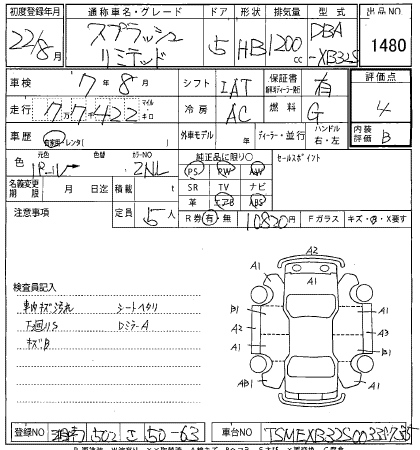 初度登録年月 通称車名・グレード ドア 形状 排気量 型式 出品NO
22/8月 スプラッシュ リミテッド 5 HB 1200cc DBA-XB32S 1480
車検 7年8月 シフト IAT 保証書 有 評価点
走行 77422 マイル キロ 冷房 AC 燃料 G 4
車歴 自家用・レンタ( ) 外車モデル 年 ディーラー・並行 ハンドル 右・左 内装評価 B
色 元色 パール 色替 カラーNO ZNL 純正品に限り○ セールスポイント
PS PW AW
名義変更期限 月 日迄 積載 t SR TV ナビ
革 エアB ABS
注意事項 定員 5人 R券 有・無 10820円 Fガラス キズ・X要す
検査員記入
車内キズ汚れ シートヘタリ
下廻りS DミラーA
キズB
A2
A1 A1
B1 A1
A1 A3
A1 A1
AB1 A1
登録NO 湘南 502 50-63 車台NO TSMEXB32S00